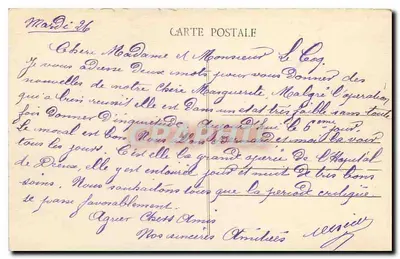 Mardi 26
CARTE POSTALE
Chere Madame et Monsieur Le Coq
Je vous adresse deux mots pour vous donner des
nouvelles de notre Chère Marguerite Malgré l'opération
qui a bien reussit elle est dans un etat très faible sans toute
fois donner d'inquietude le 6eme jour
le moral est bon Nous des la voir
tous les jours. C'est elle la grande de l'Hopital
de Dreux, elle y est entouré jour et nuit de très bons
soins. Nous souhaitons tous que la period critique
se passe favorablement.
Agreer Chers Amis
Nos sinceres Amitiées